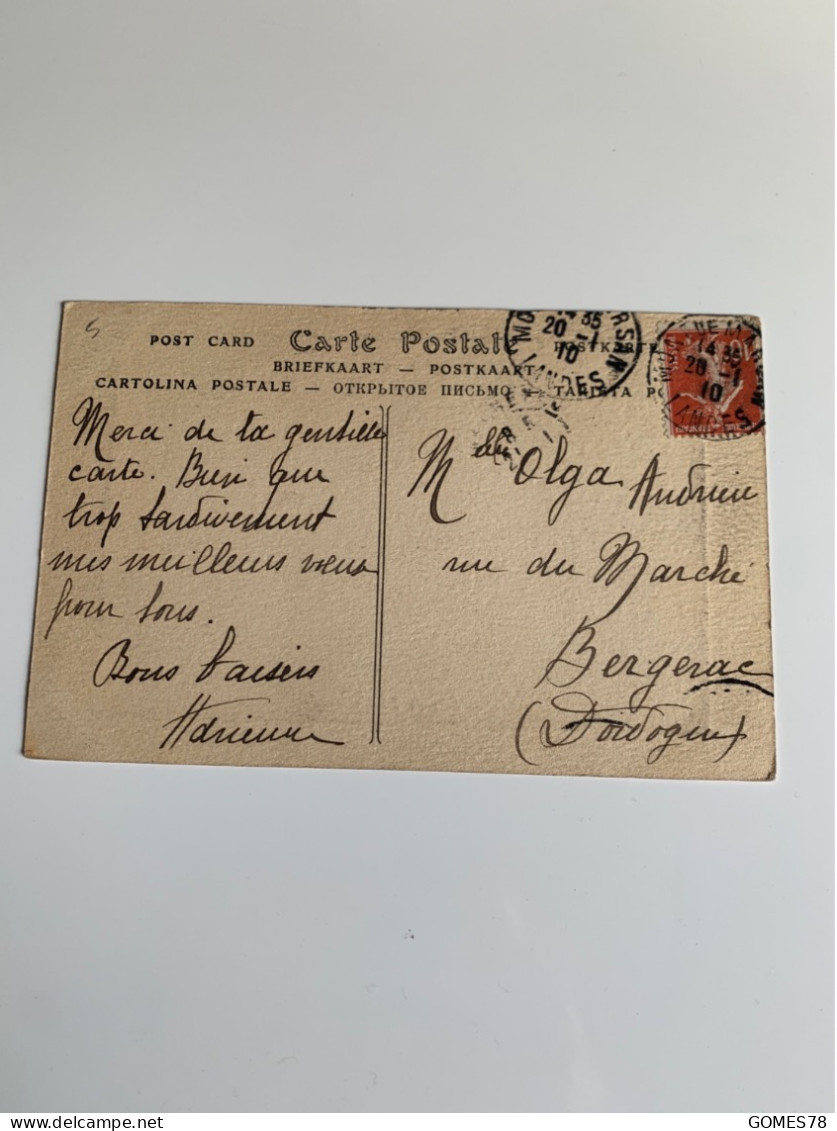 5
POST CARD Carte Postale POSTKARTE
BRIEFKAART — POSTKAART
CARTOLINA POSTALE — ОТКРЫТОЕ ПИСЬМО — TARJETA PO
14 35
20 - 1
10
LANDES
14 35
20 - 1
10
LANDES
Merci de ta gentille
carte. Bien que
trop tardivement
mes meilleurs vœux
pour tous.
Bons baisers
Adrienne
Mlle Olga Andrieu
rue du Marché
Bergerac
(Dordogne)
GOMES78